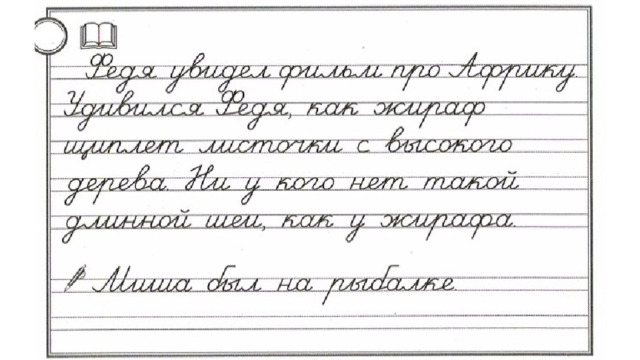 Федя увидел фильм про Африку.
Удивился Федя, как жираф
щиплет листочки с высокого
дерева. Ни у кого нет такой
длинной шеи, как у жирафа.
Миша был на рыбалке.